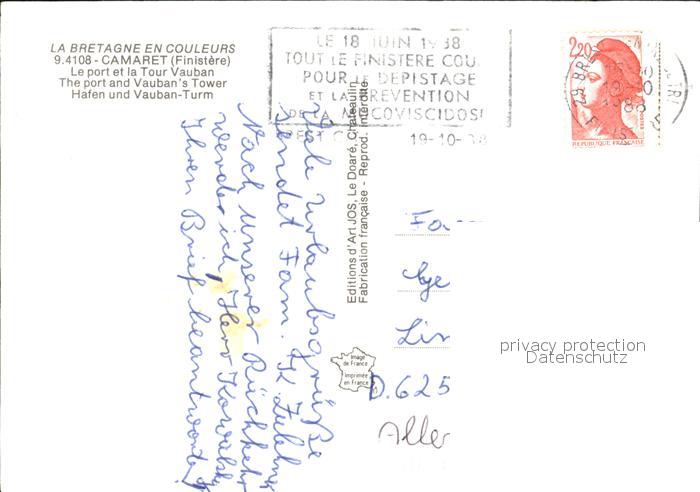 LA BRETAGNE EN COULEURS
9.4108 - CAMARET (Finistère)
Le port et la Tour Vauban
The port and Vauban's Tower
Hafen und Vauban-Turm
LE 18 JUIN 1988
TOUT LE FINISTERE COU
POUR LE DEPISTAGE
ET LA PREVENTION
DE LA MUCOVISCIDOS
EST
19-10-
2,20
REPUBLIQUE FRANÇAISE
29 BR
1988
Viele Urlaubsgrüße
sendet Fam.
Nach unserer Rückkehr
werde ich, Herr Kowalsky
Ihren Brief beantworten
Editions d'Art JOS, Le Doaré, Chateaulin
Fabrication française - Reprod. interdite
Image
de France
Imprimée
en France
Fa
Lin
D.625
Aller
privacy protection
Datenschutz